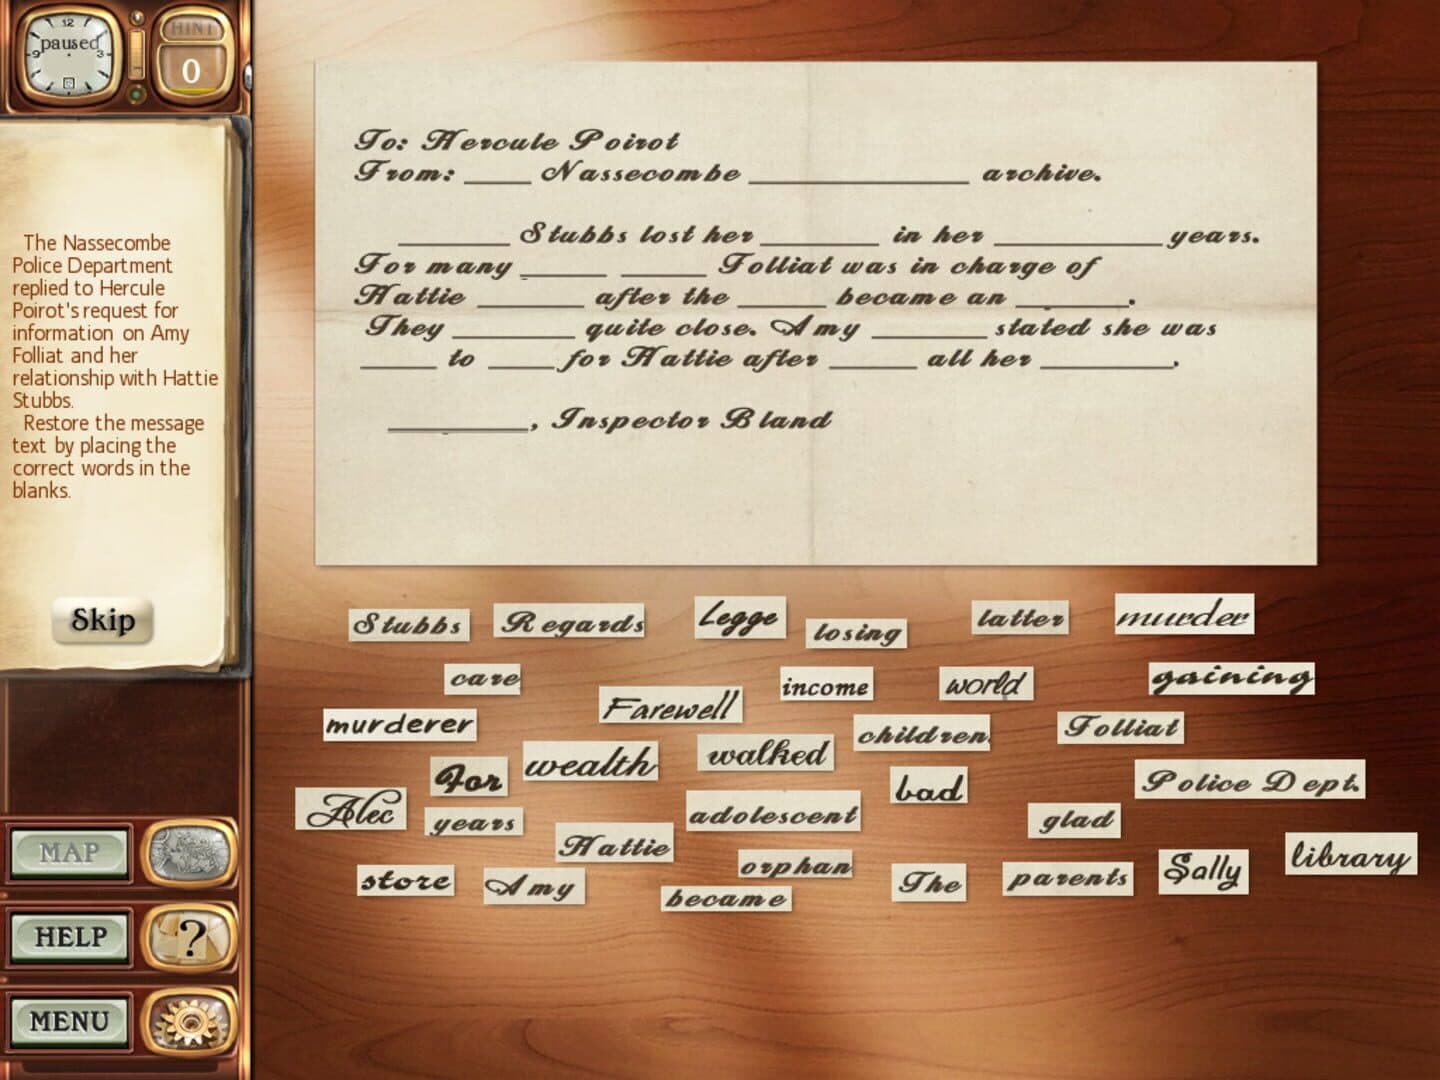 12
paused
9
3
HINT
0
The Nassecombe
Police Department
replied to Hercule
Poirot's request for
information on Amy
Folliat and her
relationship with Hattie
Stubbs.
Restore the message
text by placing the
correct words in the
blanks.
Skip
MAP
HELP
?
MENU
To: Hercule Poirot
From: ____ Nassecombe ____ archive.
____ Stubbs lost her ____ in her ____ years.
For many ____ ____ Folliat was in charge of
Hattie ____ after the ____ became an ____.
They ____ quite close. Amy ____ stated she was
____ to ____ for Hattie after ____ all her ____.
____, Inspector Bland
Stubbs Regards Legge losing latter murder
care income world gaining
murderer Farewell children. Folliat
For wealth walked bad Police Dept.
Alec years adolescent glad
Hattie orphan library
store Amy became The parents Sally